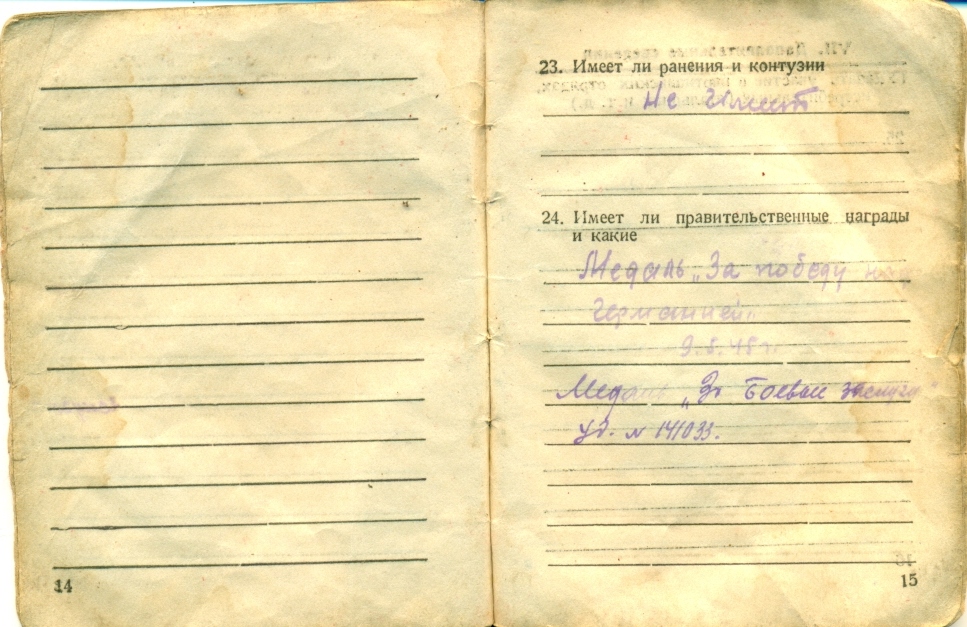 14
23. Имеет ли ранения и контузии
Не имеет
24. Имеет ли правительственные награды
и какие
Медаль „За победу над
Германией"
9.5.45 г.
Медаль „За боевые заслуги"
Уд. № 141033.
15